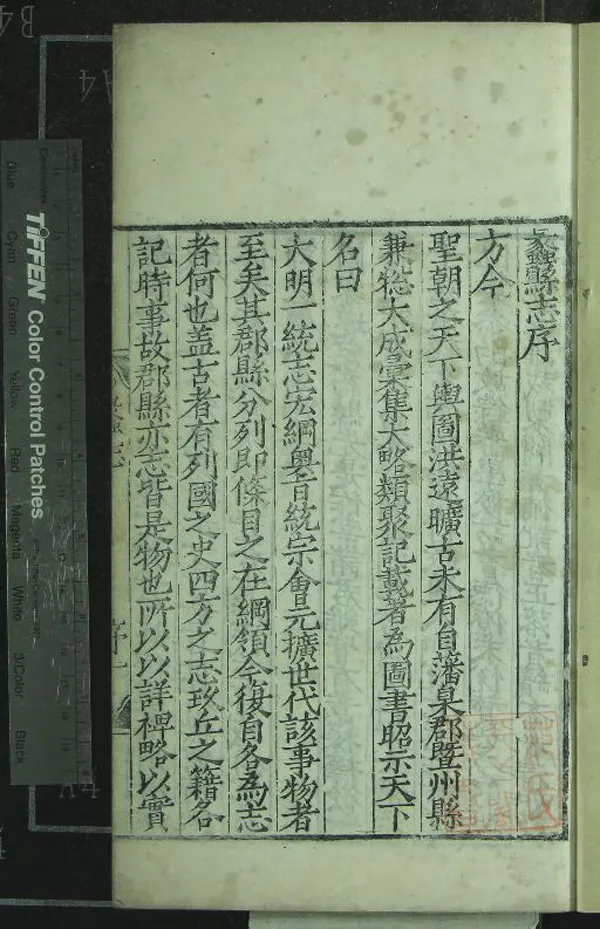 蠡縣志序
方今
聖朝之天下輿圖洪遠曠古未有自藩臬郡暨州縣
兼總大成彙集大略類聚記載著為圖書昭示天下
名曰
大明一統志宏綱奧旨統宗會元擴世代該事物者
至矣其郡縣分列即條目之在綱領今復自各為志
者何也盖古者有列國之史四方之志玖丘之籍名
記時事故郡縣亦志皆是物也所以以詳裨略以實
TIFFEN Color Control Patches
Blue
Cyan
Green
Yellow
Red
Magenta
White
3/Color
Black
B4
A4